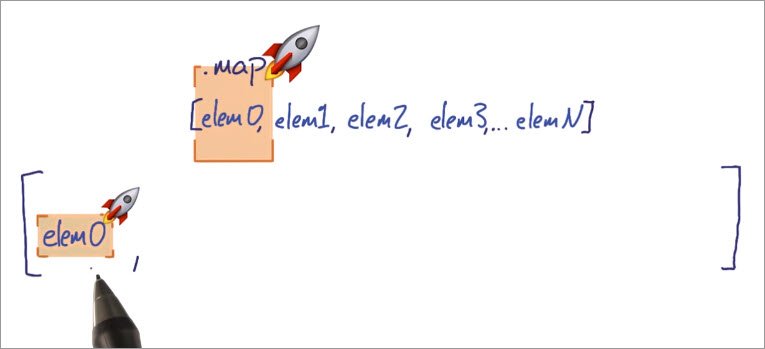 .map
[elem0, elem1, elem2, elem3,... elemN]
[elem0, ]